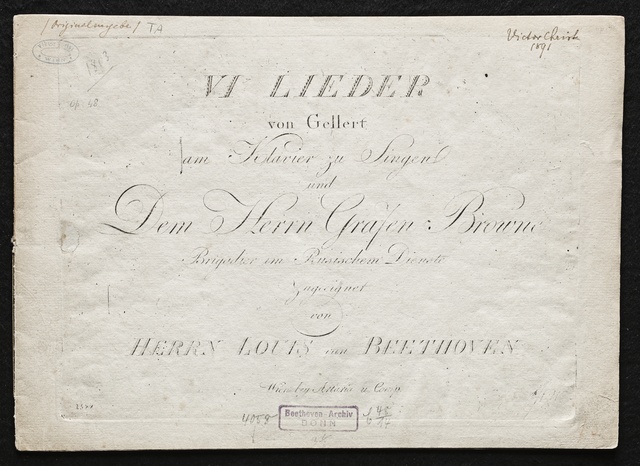 (Originalausgabe) TA
Victor Christ
1891
op 48
VI LIEDER
von Gellert
am Klavier zu Singen
und
Dem Herrn Grafen : Browne
Brigadier im Rusischem Dienste
Zugeeignet
von
HERRN LOUIS van BEETHOVEN
Wien bey Artaria u. Comp
Beethoven-Archiv
BONN